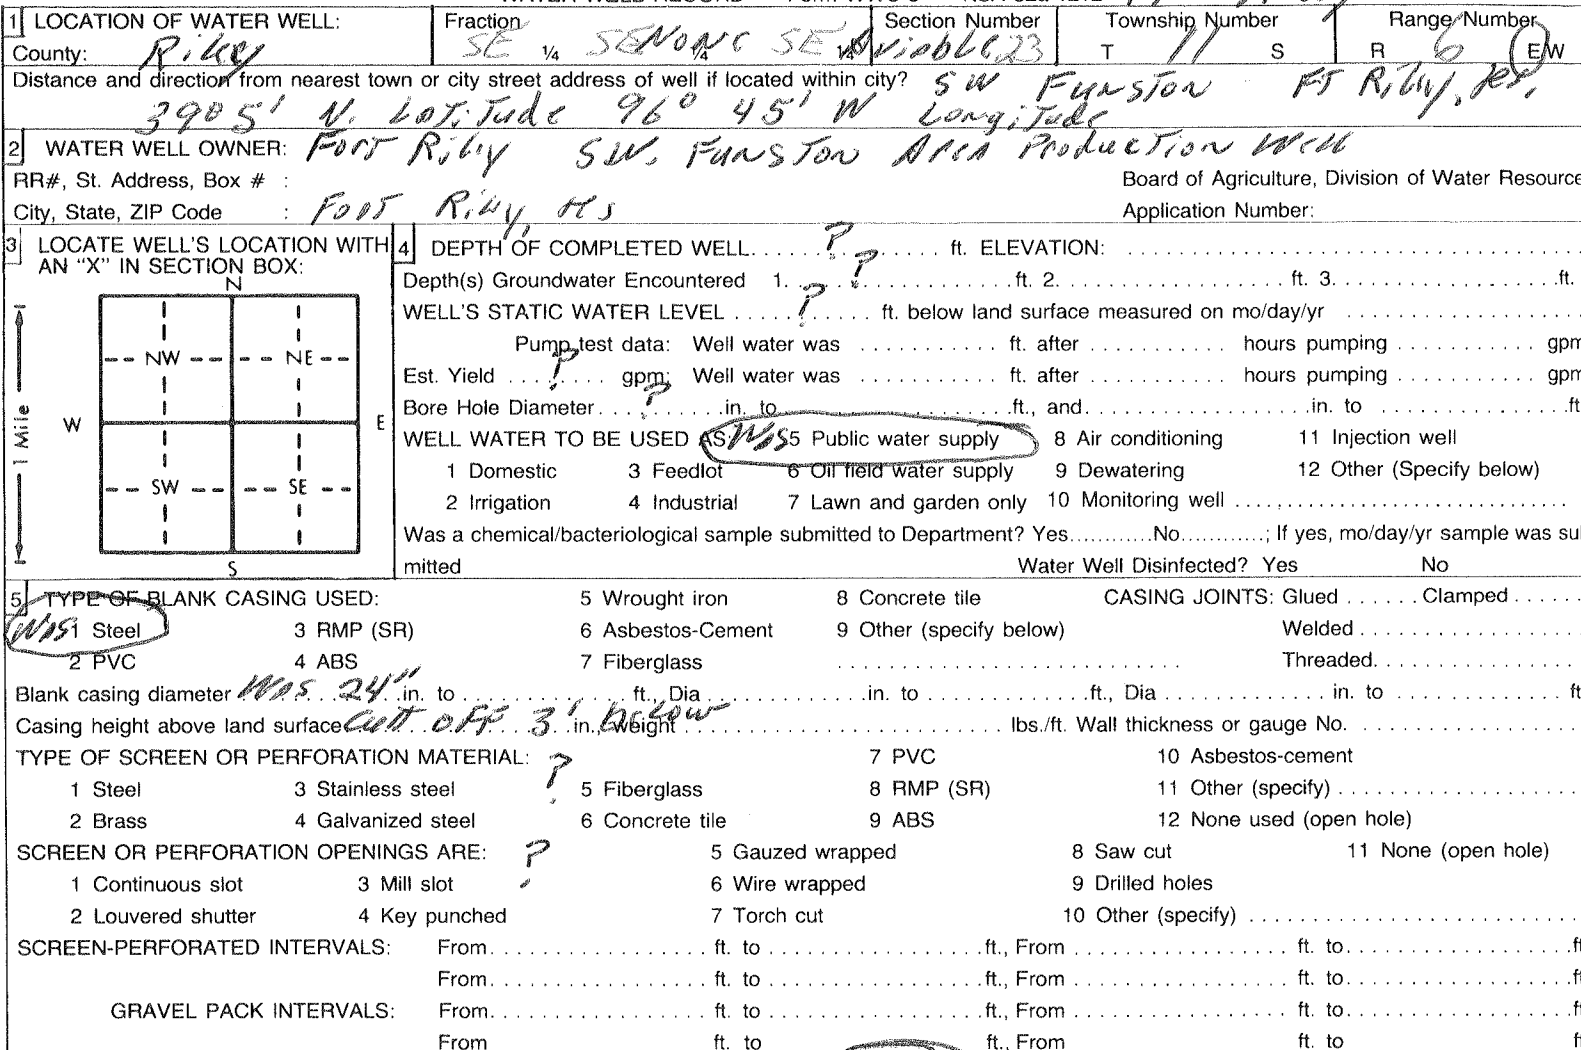 1 LOCATION OF WATER WELL: Fraction Section Number Township Number Range Number
County: Riley SE ¼ SE None ¼ SE ¼ Aviable 23 T 11 S R 6 E/W
Distance and direction from nearest town or city street address of well if located within city? SW Funston FT Riley, Ks,
39° 5' N. Latitude 96° 45' W Longitude
2 WATER WELL OWNER: Fort Riley SW. Funston Area Production Well
RR#, St. Address, Box # : Board of Agriculture, Division of Water Resource
City, State, ZIP Code : Fort Riley, Ks Application Number:
3 LOCATE WELL'S LOCATION WITH AN "X" IN SECTION BOX:
N
NW NE
W E
SW SE
S
1 Mile
4 DEPTH OF COMPLETED WELL ? ft. ELEVATION:
Depth(s) Groundwater Encountered 1. ? ft. 2. ft. 3. ft.
WELL'S STATIC WATER LEVEL ? ft. below land surface measured on mo/day/yr
Pump test data: Well water was ft. after hours pumping gpm
Est. Yield ? gpm: Well water was ft. after hours pumping gpm
Bore Hole Diameter ? in. to ft., and in. to ft
WELL WATER TO BE USED AS: Was 5 Public water supply 8 Air conditioning 11 Injection well
1 Domestic 3 Feedlot 6 Oil field water supply 9 Dewatering 12 Other (Specify below)
2 Irrigation 4 Industrial 7 Lawn and garden only 10 Monitoring well
Was a chemical/bacteriological sample submitted to Department? Yes No ; If yes, mo/day/yr sample was su
mitted Water Well Disinfected? Yes No
5 TYPE OF BLANK CASING USED: 5 Wrought iron 8 Concrete tile CASING JOINTS: Glued Clamped
Was 1 Steel 3 RMP (SR) 6 Asbestos-Cement 9 Other (specify below) Welded
2 PVC 4 ABS 7 Fiberglass Threaded
Blank casing diameter Was 24" in. to ft., Dia in. to ft., Dia in. to ft
Casing height above land surface Cutt off 3' below in., weight lbs./ft. Wall thickness or gauge No.
TYPE OF SCREEN OR PERFORATION MATERIAL: ? 7 PVC 10 Asbestos-cement
1 Steel 3 Stainless steel 5 Fiberglass 8 RMP (SR) 11 Other (specify)
2 Brass 4 Galvanized steel 6 Concrete tile 9 ABS 12 None used (open hole)
SCREEN OR PERFORATION OPENINGS ARE: ? 5 Gauzed wrapped 8 Saw cut 11 None (open hole)
1 Continuous slot 3 Mill slot 6 Wire wrapped 9 Drilled holes
2 Louvered shutter 4 Key punched 7 Torch cut 10 Other (specify)
SCREEN-PERFORATED INTERVALS: From ft. to ft., From ft. to ft
From ft. to ft., From ft. to ft
GRAVEL PACK INTERVALS: From ft. to ft., From ft. to ft
From ft. to ft., From ft. to ft